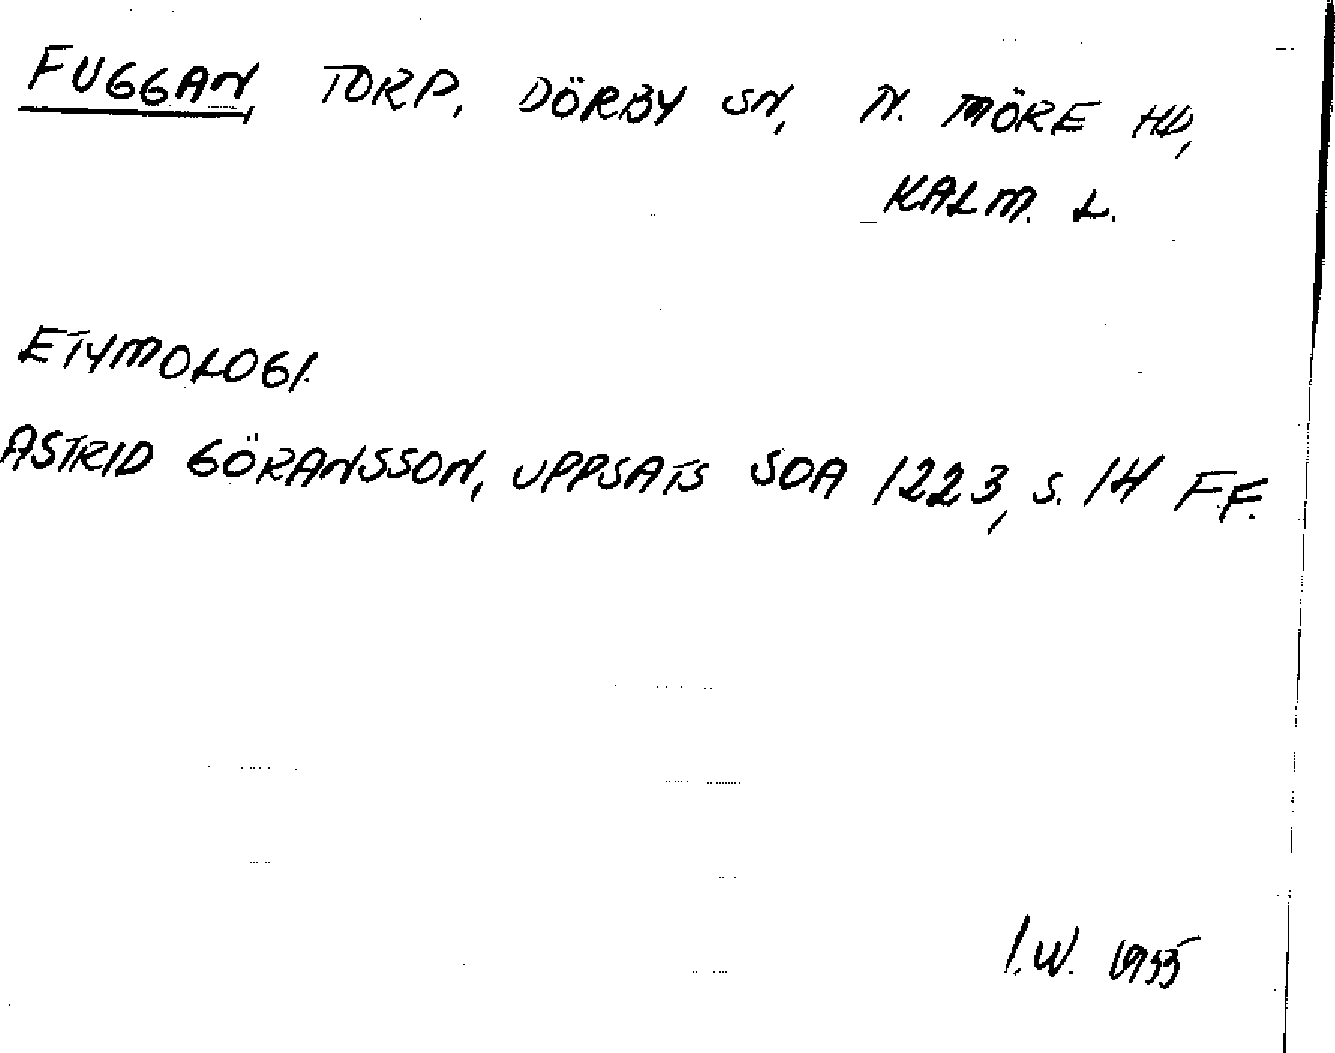 FUGGAN, TORP, DÖRBY SN, N. MÖRE HD,
KALM. L.
ETYMOLOGI.
ASTRID GÖRANSSON, UPPSATS SOA 1223, S. 14 F.F.
I.W. 1955